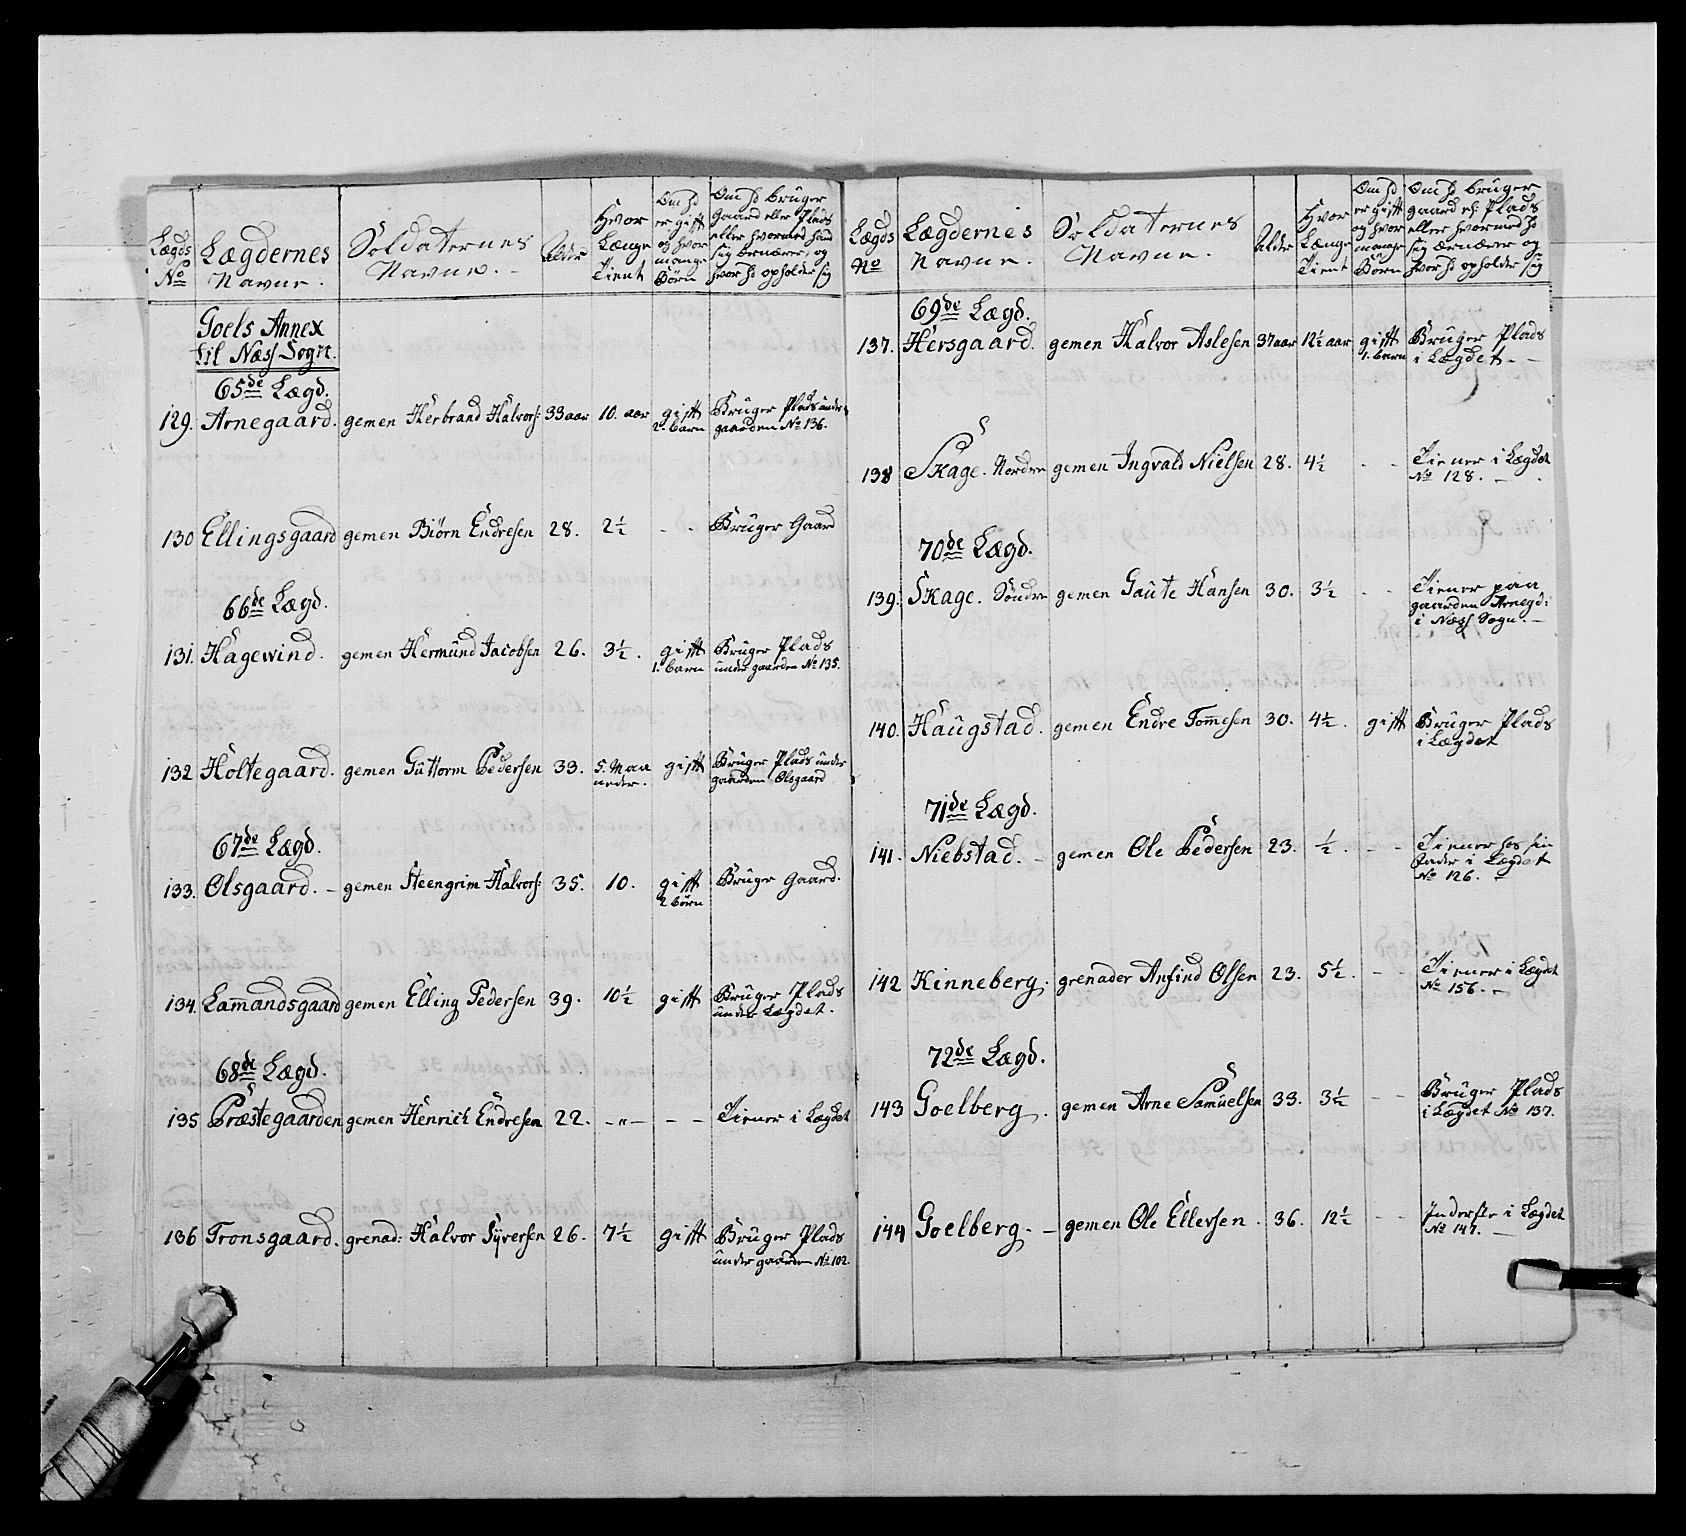 Lægds No
Lægdernes Navne.
Soldaternes Navne.
Alder
Hvor Længe Tient
Om hd er gift og hvor mange Børn
Om hd bruger Gaard eller Plads eller hvormed hand sig ernærer, og hvor hd opholder sig
Goels Annex
til Næss Sogn.
65de Lægd.
129. Arnegaard. gemen Herbrand Halvors: 33 aar 10. aar gift 2. barn Bruger Plads under gaarden No 136.
130 Ellingsgaard gemen Biørn Endresen 28. 2½ - - Bruger Gaard
66de Lægd.
131. Hagewind. gemen Hermund Jacobsen 26. 3½. gift 1. barn Bruger Plads under gaarden No 135.
132 Holtegaard. gemen Guttorm Pedersen 33. 5. Maaneder. gift Bruger Plads under gaarden Olsgaard
67de Lægd.
133. Olsgaard. - gemen Steengrim Halvors: 35. 10. gift 2 børn Bruger Gaard.
134. Lamandsgaard gemen Elling Pedersen 39. 10½ gift Bruger Plads under Lægdet.
68de Lægd.
135 Præstegaarden gemen Henrich Endresen 22. -"- - - Tiener i Lægdet
136 Tronsgaard. grenad: Halvor Syversen 26. 7½ gift Bruger Plads under gaarden No 102.
Lægds No
Lægdernes Navne.
Soldaternes Navne.
Alder
Hvor Længe Tient
Om hd er gift og hvor mange Børn
Om hd bruger gaard el: Plads eller hvormed hd sig ernærer og hvor hd opholder sig
69de Lægd.
137. Hersgaard. gemen Halvor Aslesen 37 aar 12½ aar gift 1. barn Bruger Plads i Lægdet. -
138 Skage. Nordre gemen Ingvald Nielsen 28. 4½ - - Tiener i Lægdet No 128. -
70de Lægd.
139. Skage. Søndre gemen Gaute Hansen 30. 3½ - - Tiener paa gaarden Arnegd: i Næss Sogn. -
140. Haugstad. gemen Endre Tomesen 30. 4½. gift Bruger Plads i Lægdet
71de Lægd.
141. Niebstad. - gemen Ole Pedersen 23. ½. - - Tiener hos sin fader i Lægdet No 126. -
142 Kinneberg. grenader Anfind Olsen 23. 5½. - - Tiener i Lægdet No 156. -
72de Lægd.
143 Goelberg. gemen Arne Samuelsen 33. 3½ - - Bruger Plads i Lægdet No 137.
144 Goelberg. - gemen Ole Ellevsen. 36. 12½ - - Inderste i Lægdet No 147. -